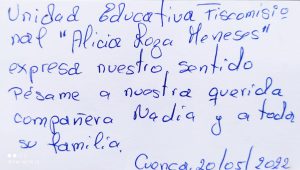 Unidad Educativa Fiscomisio
nal "Alicia Loza Meneses"
expresa nuestro sentido
Pésame a nuestra querida
compañera Nadia y a toda
su familia.
Cuenca, 20/05/2022